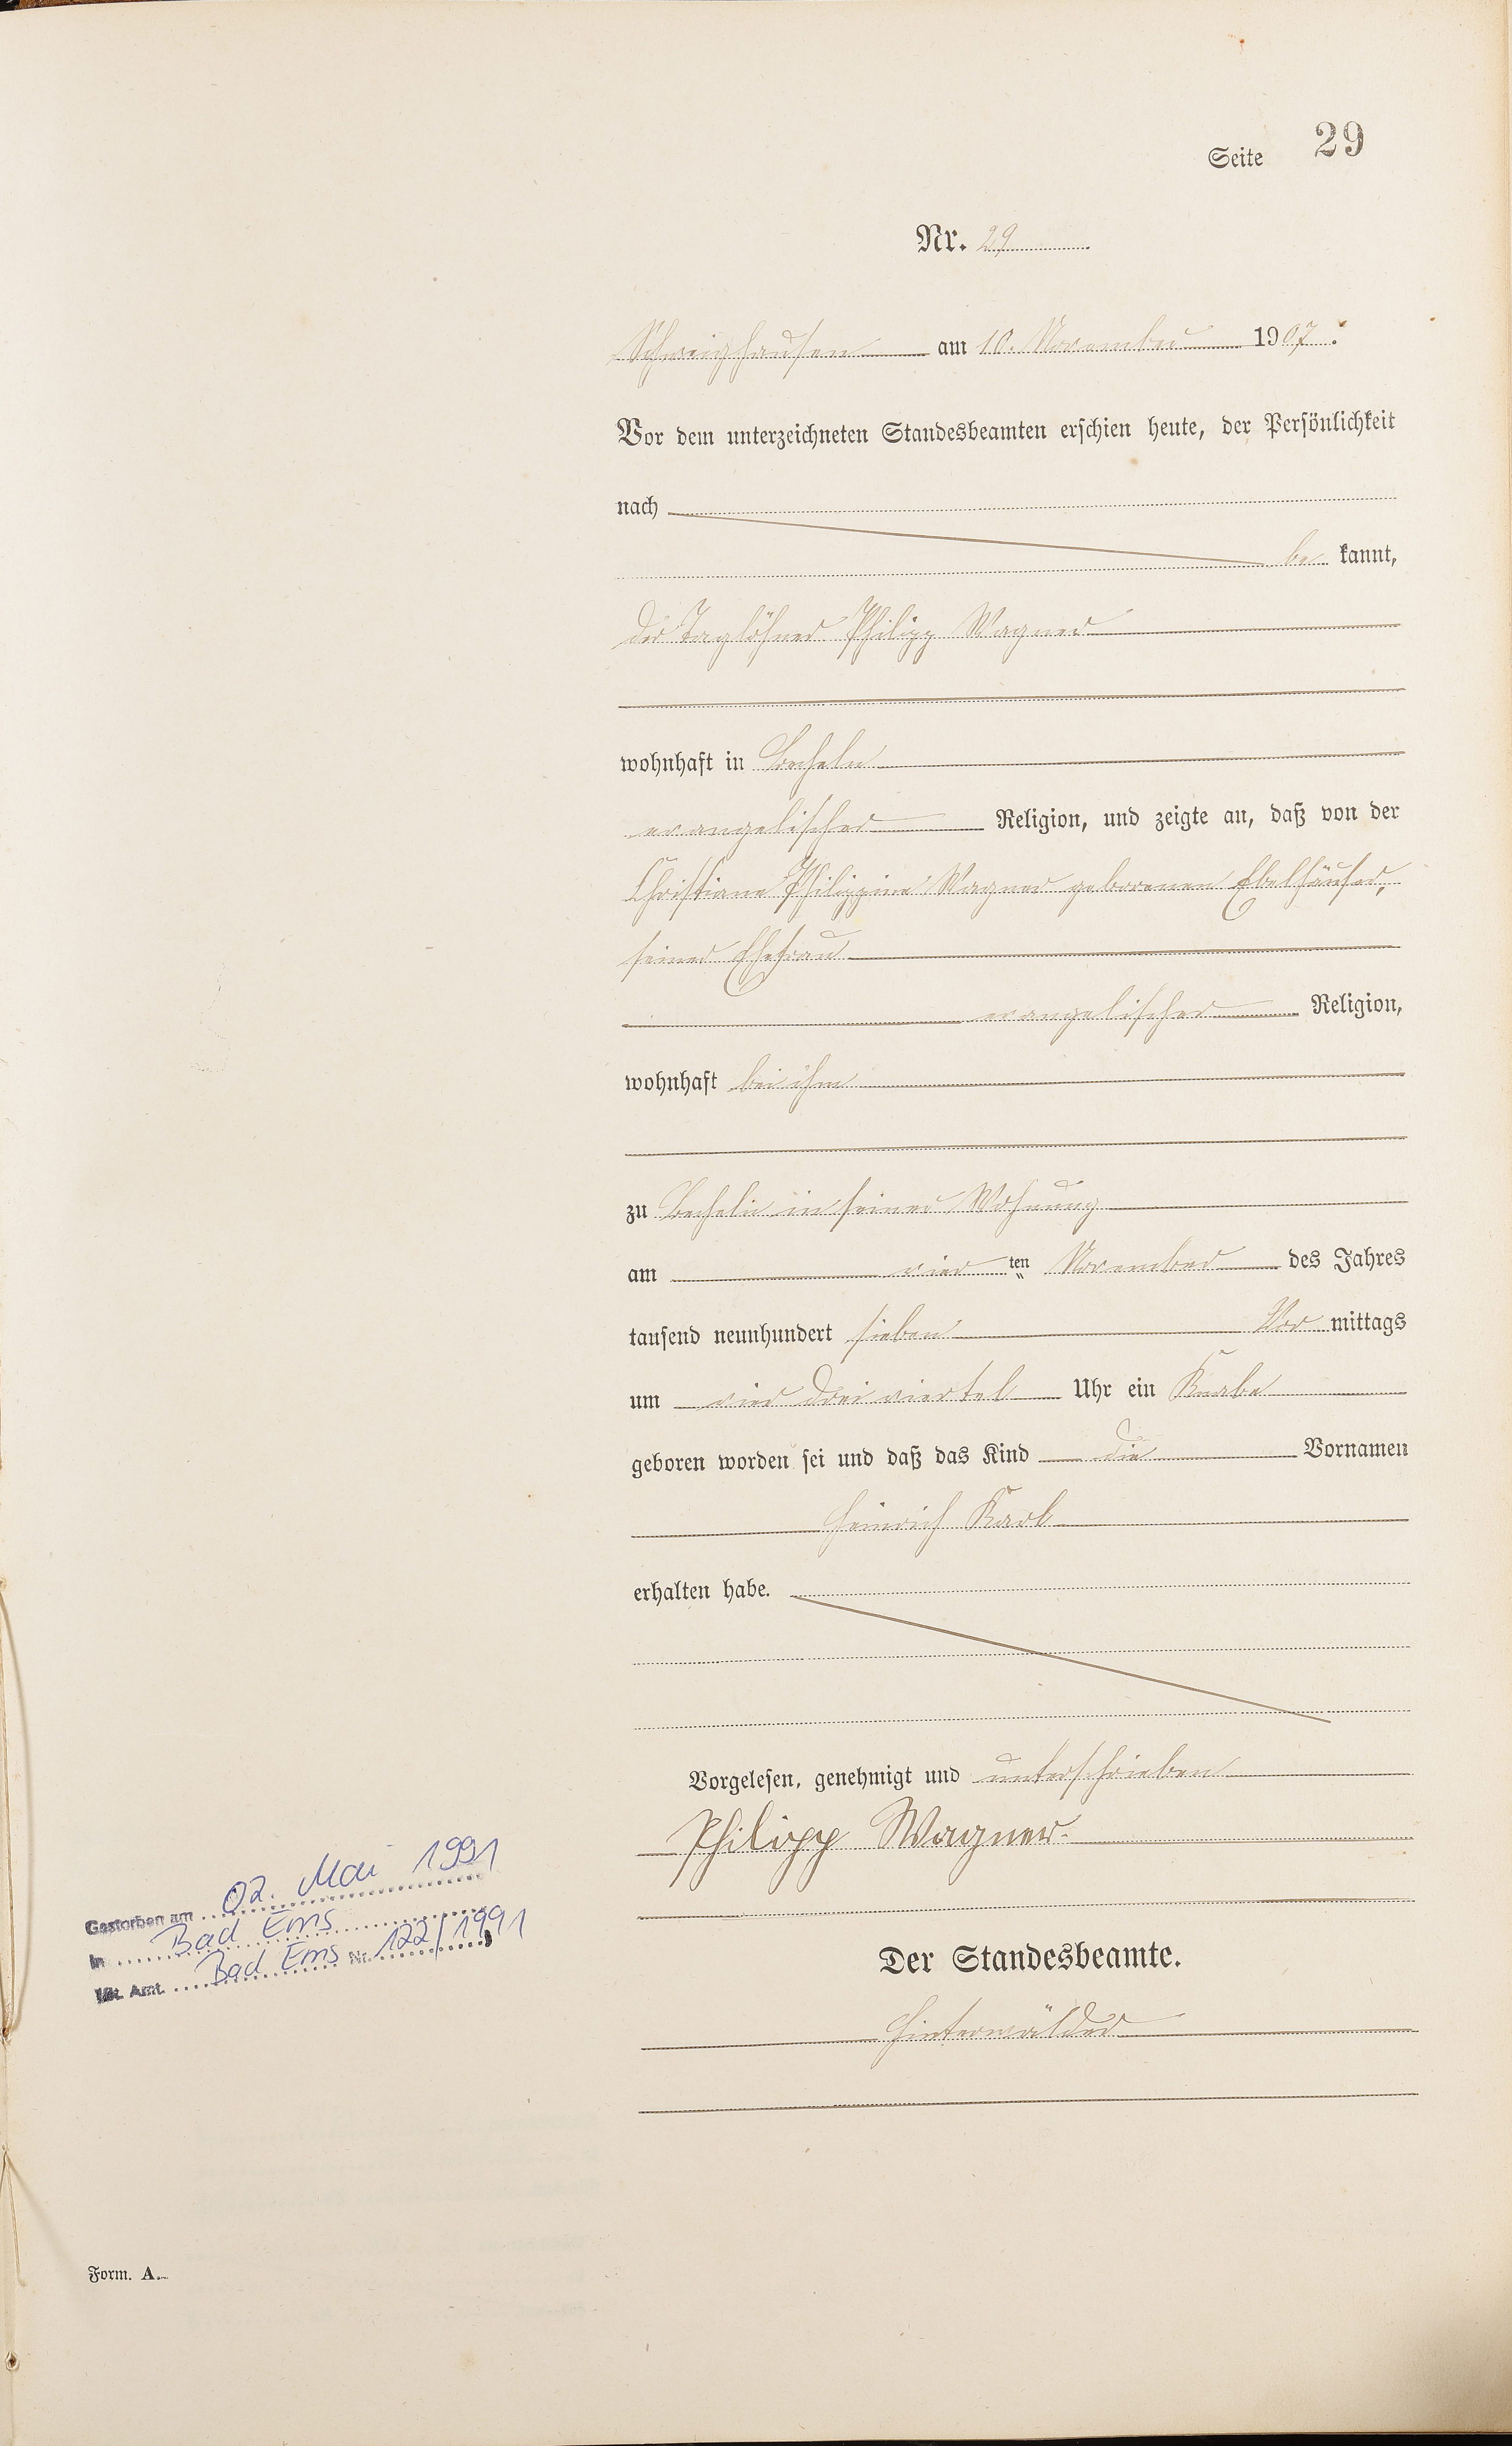 Seite 29
Nr. 29
Schweighausen am 10. November 1907.
Vor dem unterzeichneten Standesbeamten erschien heute, der Persönlichkeit
nach
be kannt,
der Taglöhner Philipp Wagner
wohnhaft in Becheln
evangelischer Religion, und zeigte an, daß von der
Christiane Philippine Wagner geborenen Ebelhäuser,
seiner Ehefrau
evangelischer Religion,
wohnhaft bei ihm
zu Becheln in seiner Wohnung
am vier ten November des Jahres
tausend neunhundert sieben Vor mittags
um vier drei viertel Uhr ein Knabe
geboren worden sei und daß das Kind die Vornamen
Heinrich Karl
erhalten habe.
Vorgelesen, genehmigt und unterschrieben
Philipp Wagner.
Der Standesbeamte.
Hinterwälder
Gestorben am 02. Mai 1991
in Bad Ems
St. Amt. Bad Ems Nr. 122/1991
Form. A.